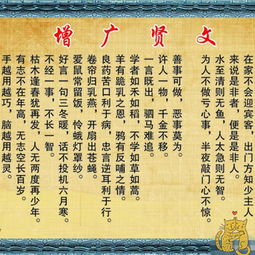 增广贤文
在家不会迎宾客，出门方知少主人
来说是非者，便是是非人。
水至清则无鱼，人太急则无智。
为人不做亏心事，半夜敲门心不惊。
善事可做，恶事莫为。
许人一物，千金不移。
一言既出，驷马难追。
学者如禾如稻，不学者如草如蒿。
羊有跪乳之恩，鸦有反哺之情。
良药苦口利于病，忠言逆耳利于行。
卷帘归乳燕，开扇出苍蝇。
爱鼠常留饭，怜蛾灯罩纱。
好言一句三冬暖，话不投机六月寒。
不经一事，不长一智。
枯木逢春犹再发，人无两度再少年。
有志不在年高，无志空长百岁。
手越用越巧，脑越用越灵。